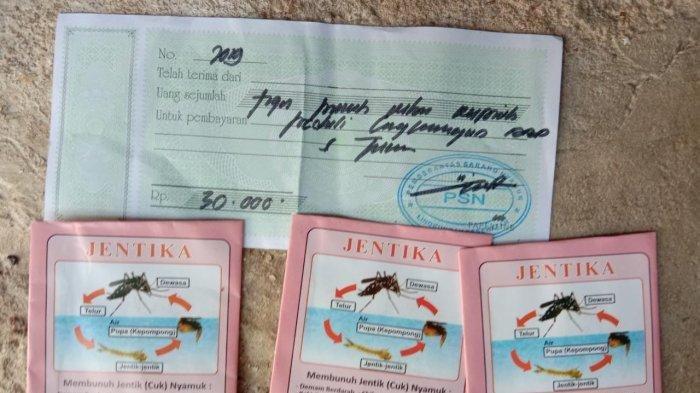 No. 2019
Telah terima dari
Uang sejumlah tiga puluh ribu rupiah
Untuk pembayaran peduli lingkungan
Rp. 30.000.
PEMBERANTAS SARANG
PSN
JENTIKA
Dewasa
Telur
Air
Pupa (Kepompong)
Jentik-jentik
Membunuh Jentik (Cuk) Nyamuk :
JENTIKA
Dewasa
Telur
Air
Pupa (Kepompong)
Jentik-jentik
Membunuh Jentik (Cuk) Nyamuk :
- Demam Berdarah
JENTIKA
Dewasa
Telur
Air
Pupa (Kepompong)
Jentik-jentik
Membunuh Jentik (Cuk) Nyamuk :